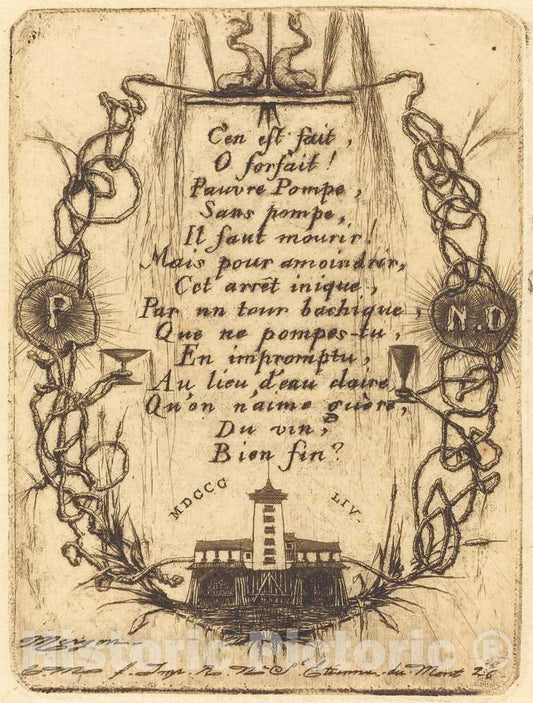 C'en est fait,
O forfait!
Pauvre Pompe,
Sans pompe,
Il faut mourir!
Mais pour amoindrir,
Cet arrêt inique,
Par un tour bachique,
Que ne pompes-tu,
En impromptu,
Au lieu d'eau claire,
Qu'on n'aime guère,
Du vin,
Bien fin?
P
N.D
MDCCC LIV.
Meryon
Historic Pictoric ®
C M f. Imp. R N St Etienne du Mont 26